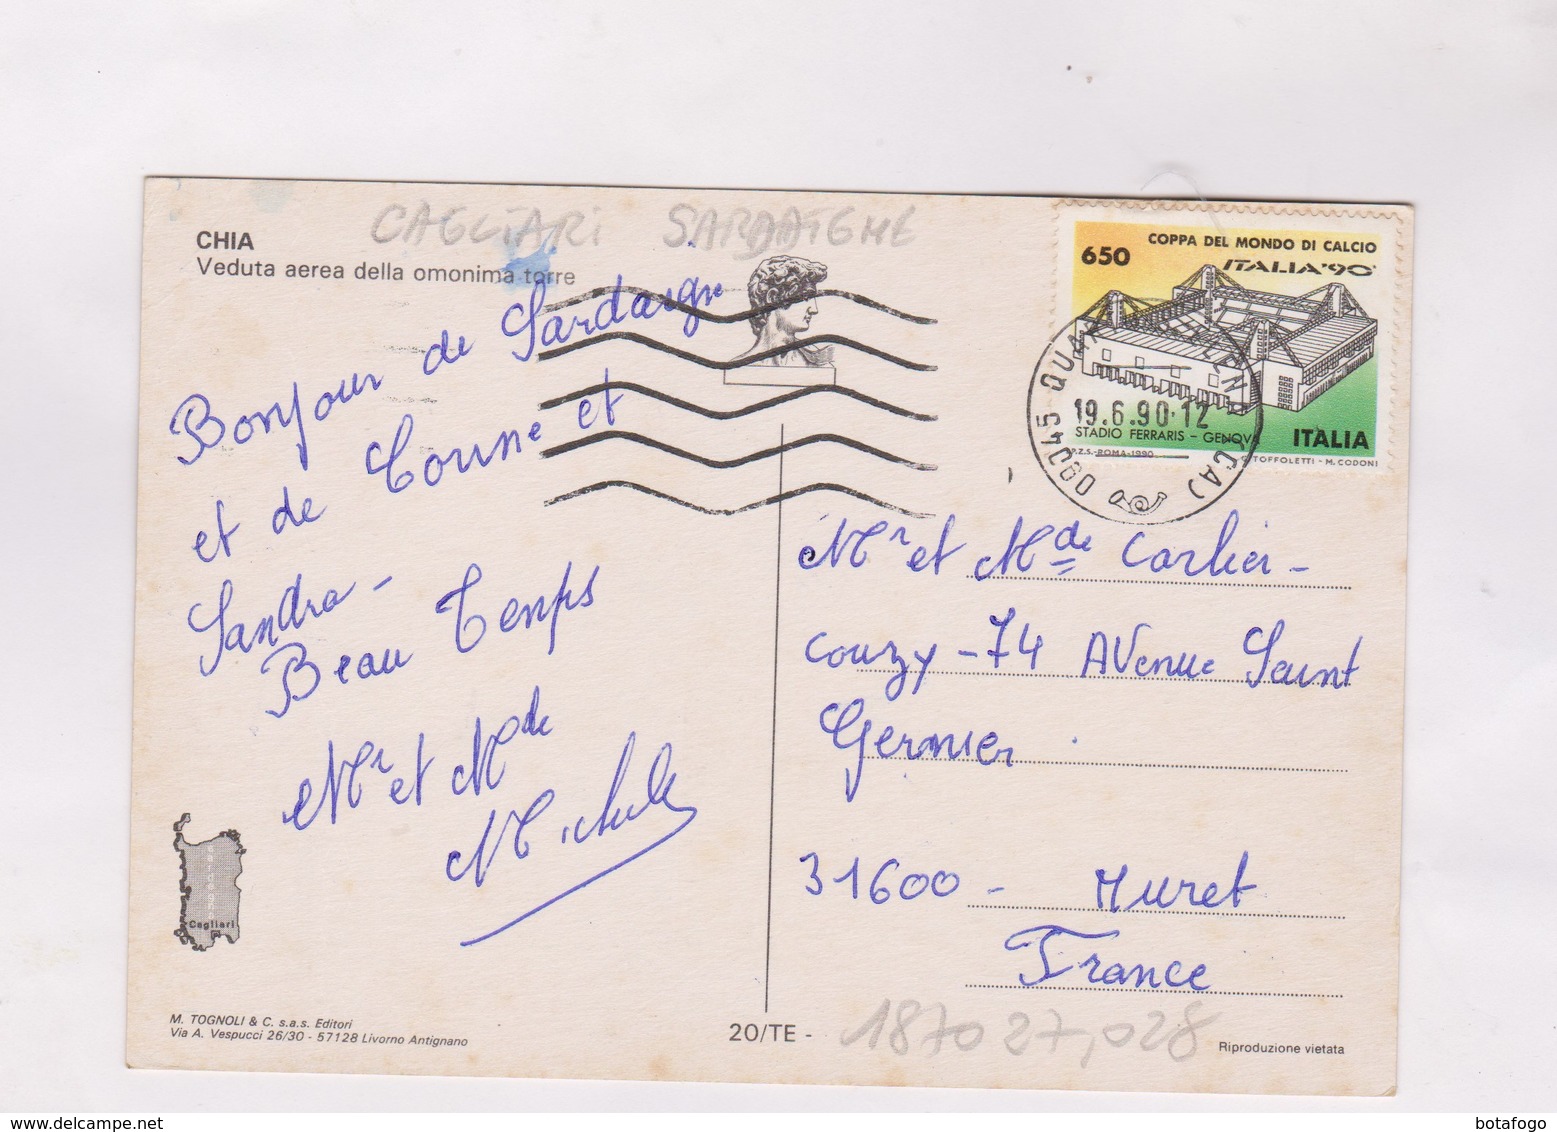 CAGLIARI SARDAIGNE
CHIA
Veduta aerea della omonima torre
Bonjour de Sardaigne
et de Corinne et
Sandra -
Beau Temps
Mr et Mde
Michule
650
COPPA DEL MONDO DI CALCIO
ITALIA'90
STADIO FERRARIS - GENOVA
ITALIA
I.P.Z.S.-ROMA-1990
TOFFOLETTI - M. CODONI
09045 QUARTU S. ELENA (CA)
19.6.90.12
Mr et Mde Carlier -
Couzy - 74 Avenue Saint
Germier
31600 - Muret
France
Cagliari
M. TOGNOLI & C. s.a.s. Editori
Via A. Vespucci 26/30 - 57128 Livorno Antignano
20/TE -
187027,028
Riproduzione vietata
botafogo